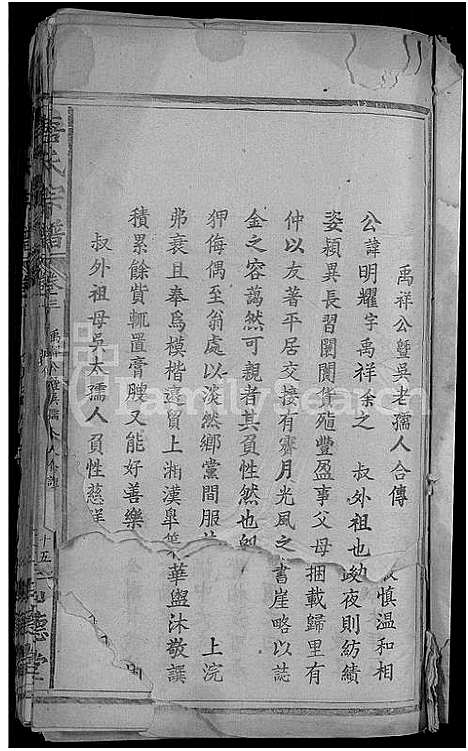 禹祥公曁吳老孺人合傳
公諱明耀字禹祥余之 叔外祖也
慎溫和相
姿穎異長習闤闠貨殖豐盈事父母
夜則紡績
捆載歸里有
仲以友著平居交接有霽月光風之
書崖略以誌
金之容藹然可親者其負性然也
狎侮偶至翁處以淡然鄉黨間服
上浣
弗衰且奉爲模楷遠貿上湘漢皋
華盥沐敬譔
積累餘貲輒置膏腴又能好善樂
叔外祖母吳太孺人負性慈祥
氏宗譜
卷三
十五
堂
FamilySearch